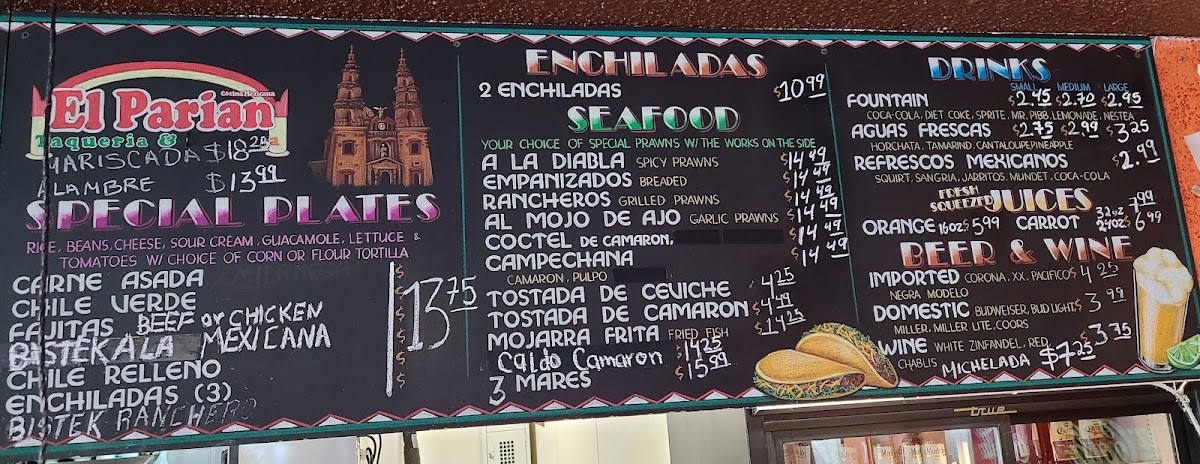 El Parian
Cocina Mexicana
Taqueria &
MARISCADA $18.29
ALAMBRE $13.99
SPECIAL PLATES
RICE, BEANS, CHEESE, SOUR CREAM, GUACAMOLE, LETTUCE &
TOMATOES W/ CHOICE OF CORN OR FLOUR TORTILLA
CARNE ASADA
CHILE VERDE
FAJITAS BEEF or CHICKEN
BISTEK A LA MEXICANA
CHILE RELLENO
ENCHILADAS (3)
BISTEK RANCHERO
$13.75
ENCHILADAS
2 ENCHILADAS $10.99
SEAFOOD
YOUR CHOICE OF SPECIAL PRAWNS W/ THE WORKS ON THE SIDE
A LA DIABLA SPICY PRAWNS $14.49
EMPANIZADOS BREADED $14.49
RANCHEROS GRILLED PRAWNS $14.49
AL MOJO DE AJO GARLIC PRAWNS $14.49
COCTEL DE CAMARON, $14.49
CAMPECHANA $14.49
CAMARON, PULPO
TOSTADA DE CEVICHE $4.25
TOSTADA DE CAMARON $4.49
MOJARRA FRITA FRIED FISH $14.25
Caldo Camaron $14.25
3 MARES $15.99
DRINKS
SMALL MEDIUM LARGE
FOUNTAIN $2.45 $2.70 $2.95
COCA-COLA, DIET COKE, SPRITE, MR. PIBB, LEMONADE, NESTEA
AGUAS FRESCAS $2.75 $2.99 $3.25
HORCHATA, TAMARIND, CANTALOUPE, PINEAPPLE
REFRESCOS MEXICANOS $2.99
SQUIRT, SANGRIA, JARRITOS, MUNDET, COCA-COLA
FRESH SQUEEZED JUICES
ORANGE 16oz $5.99 CARROT 32oz 7.99
24oz $6.99
BEER & WINE
IMPORTED CORONA, XX, PACIFICO $4.25
NEGRA MODELO
DOMESTIC BUDWEISER, BUD LIGHT $3.99
MILLER, MILLER LITE, COORS
WINE WHITE ZINFANDEL, RED, $3.75
CHABLIS
MICHELADA $7.25
true